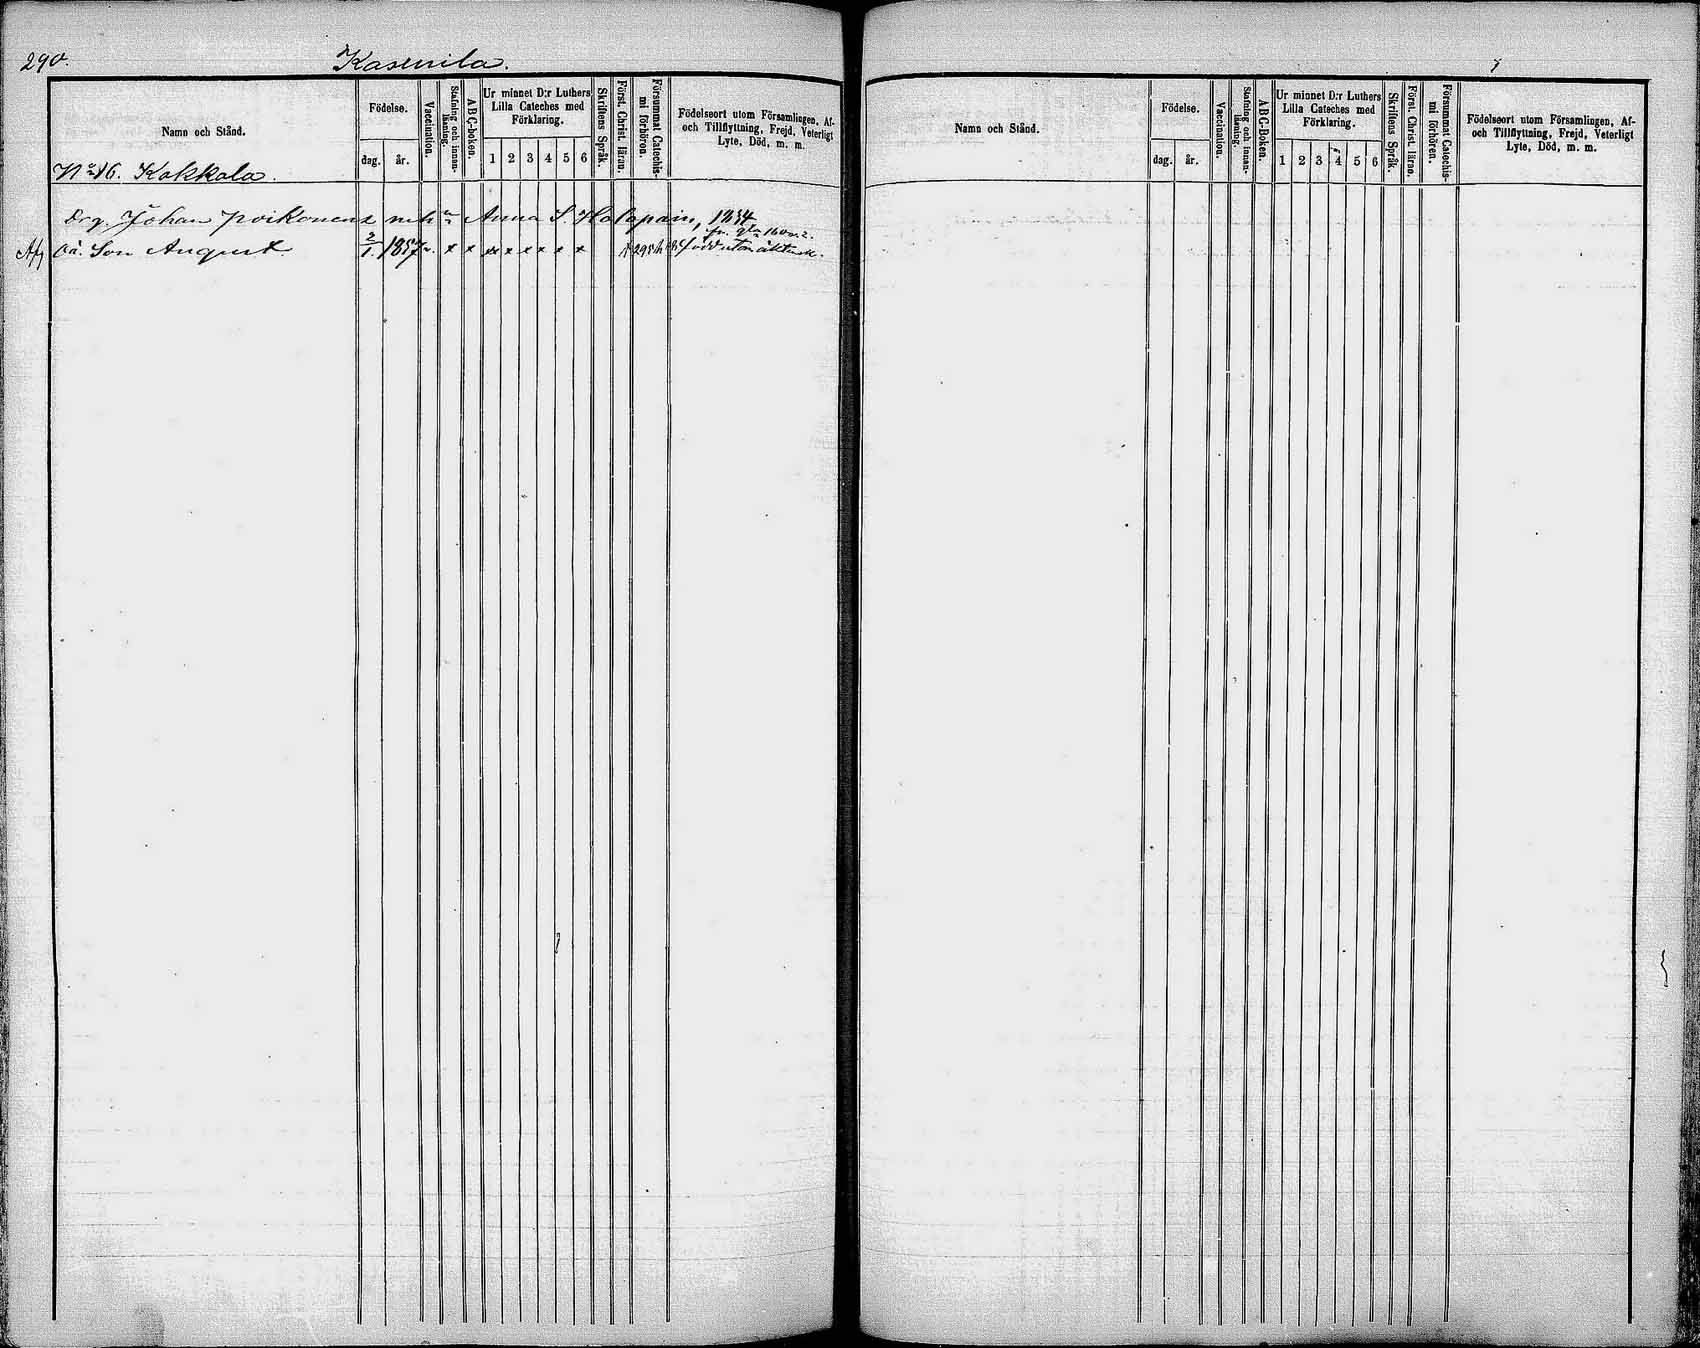 290. Kasurila.
Namn och Stånd.
Födelse.
dag. år.
Vaccination.
Stafning och innanläsning.
ABC-boken.
Ur minnet D:r Luthers Lilla Cateches med Förklaring.
1 2 3 4 5 6
Skriftens Språk.
Först. Christ. läran.
Försummat Catechismi förhören.
Födelseort utom Församlingen, Af- och Tillflyttning, Frejd, Veterligt Lyte, Död, m. m.
No 16. Kokkola.
Johan Poikonens Anna S. 1834
Oä. Son August 2/1. 1857 v. x x x x x x x x född utom äktensk.
Namn och Stånd.
Födelse.
dag. år.
Vaccination.
Stafning och innanläsning.
ABC-Boken.
Ur minnet D:r Luthers Lilla Cateches med Förklaring.
1 2 3 4 5 6
Skriftens Språk.
Först. Christ. läran.
Försummat Catechismi förhören.
Födelseort utom Församlingen, Af- och Tillflyttning, Frejd, Veterligt Lyte, Död, m. m.